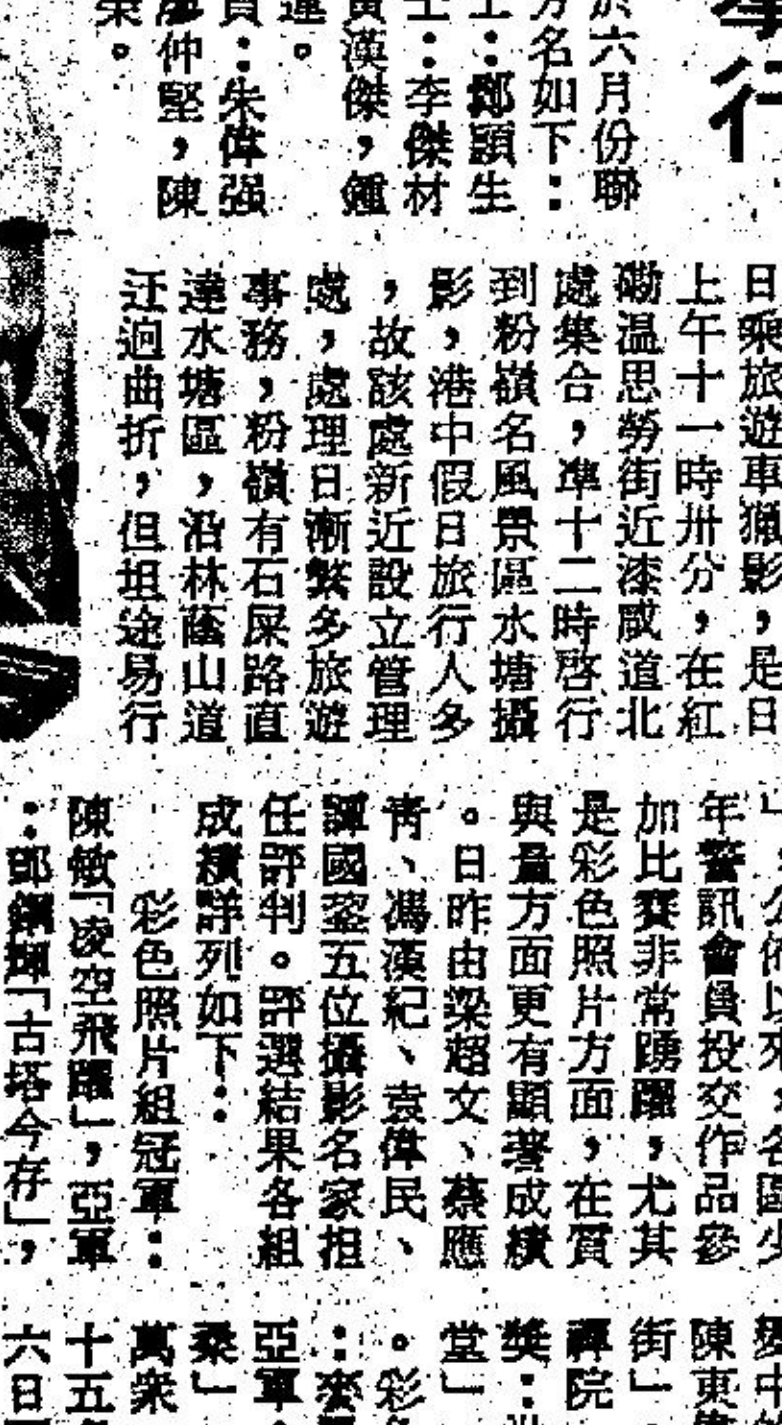 行
於六月份聯
名如下：
：鄭顯生
士：李傑材
黃漢傑，鍾
蓮。
員：朱偉强
廖仲堅，陳
榮。
日乘旅遊車獵影，是日
上午十一時卅分，在紅
磡温思勞街近漆咸道北
處集合，凖十二時啓行
到粉嶺名風景區水塘攝
影，港中假日旅行人多
，故該處新近設立管理
處，處理日漸繁多旅遊
事務，粉嶺有石屎路直
達水塘區，沿林蔭山道
迂迴曲折，但坦途易行
以來，各區少
年警訊會員投交作品參
加比賽非常踴躍，尤其
是彩色照片方面，在質
與量方面更有顯著成績
。日昨由梁超文、蔡應
靑、馮漢紀、袁偉民、
譚國荃五位攝影名家担
任評判。評選結果各組
成績詳列如下：
彩色照片組冠軍：
陳敏「凌空飛躍」，亞軍
：鄧鋼輝「古塔今存」，
陳東
街」
禪院
獎：
堂」
。彩
：麥
亞軍
桑」
萬衆
十五
六日